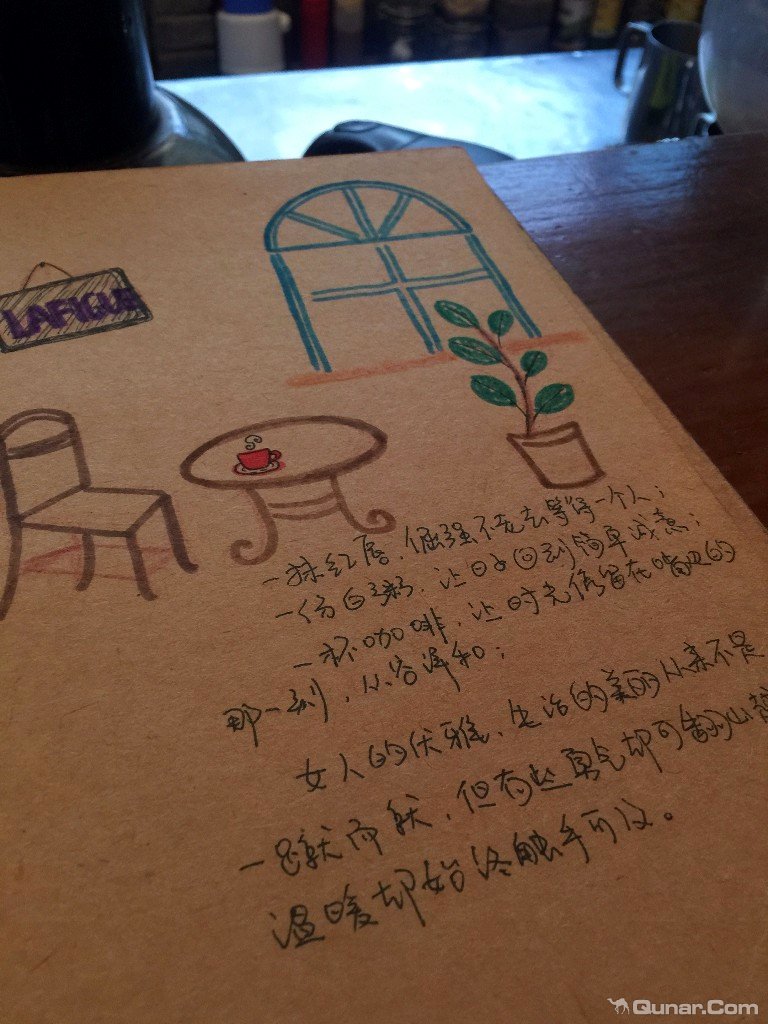 LAFIGUE
一抹红唇，倔强不羁去等候一个人；
一份白粥，让日子回到简单浅素；
一杯咖啡，让时光停留在嘴边的
那一刻，从容温和；
女人的优雅，生活的美丽从来不是
一蹴而就，但有些勇气却可翻山越
温暖却始终触手可及。
Qunar.Com